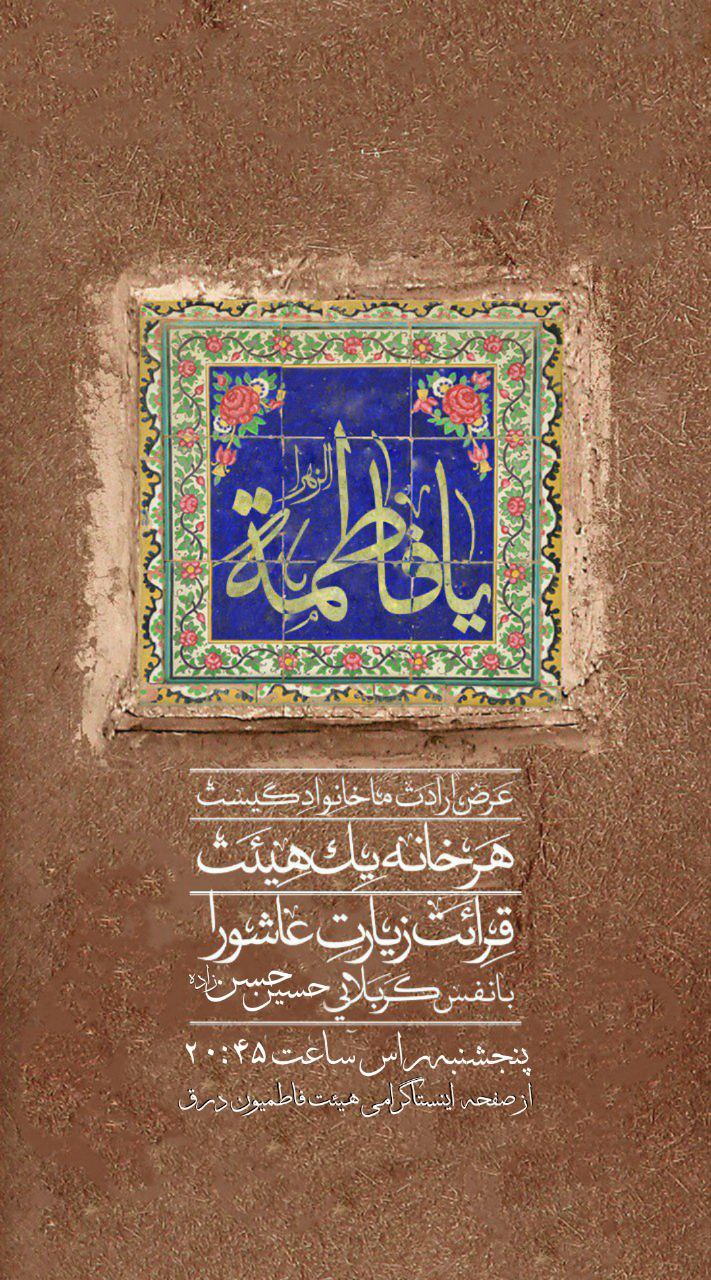 یا فاطمة الزهرا
عَرضِ اِرادَت ما خانوادِگیست
هَر خانه یِك هِیئَت
قِرائَت زیارتِ عاشورا
با نفس کَربَلایي حسین حسن زاده
پنجشنبه راس ساعت ۲۰:۴۵
از صفحه اینستاگرامی هیئت فاطمیون درق